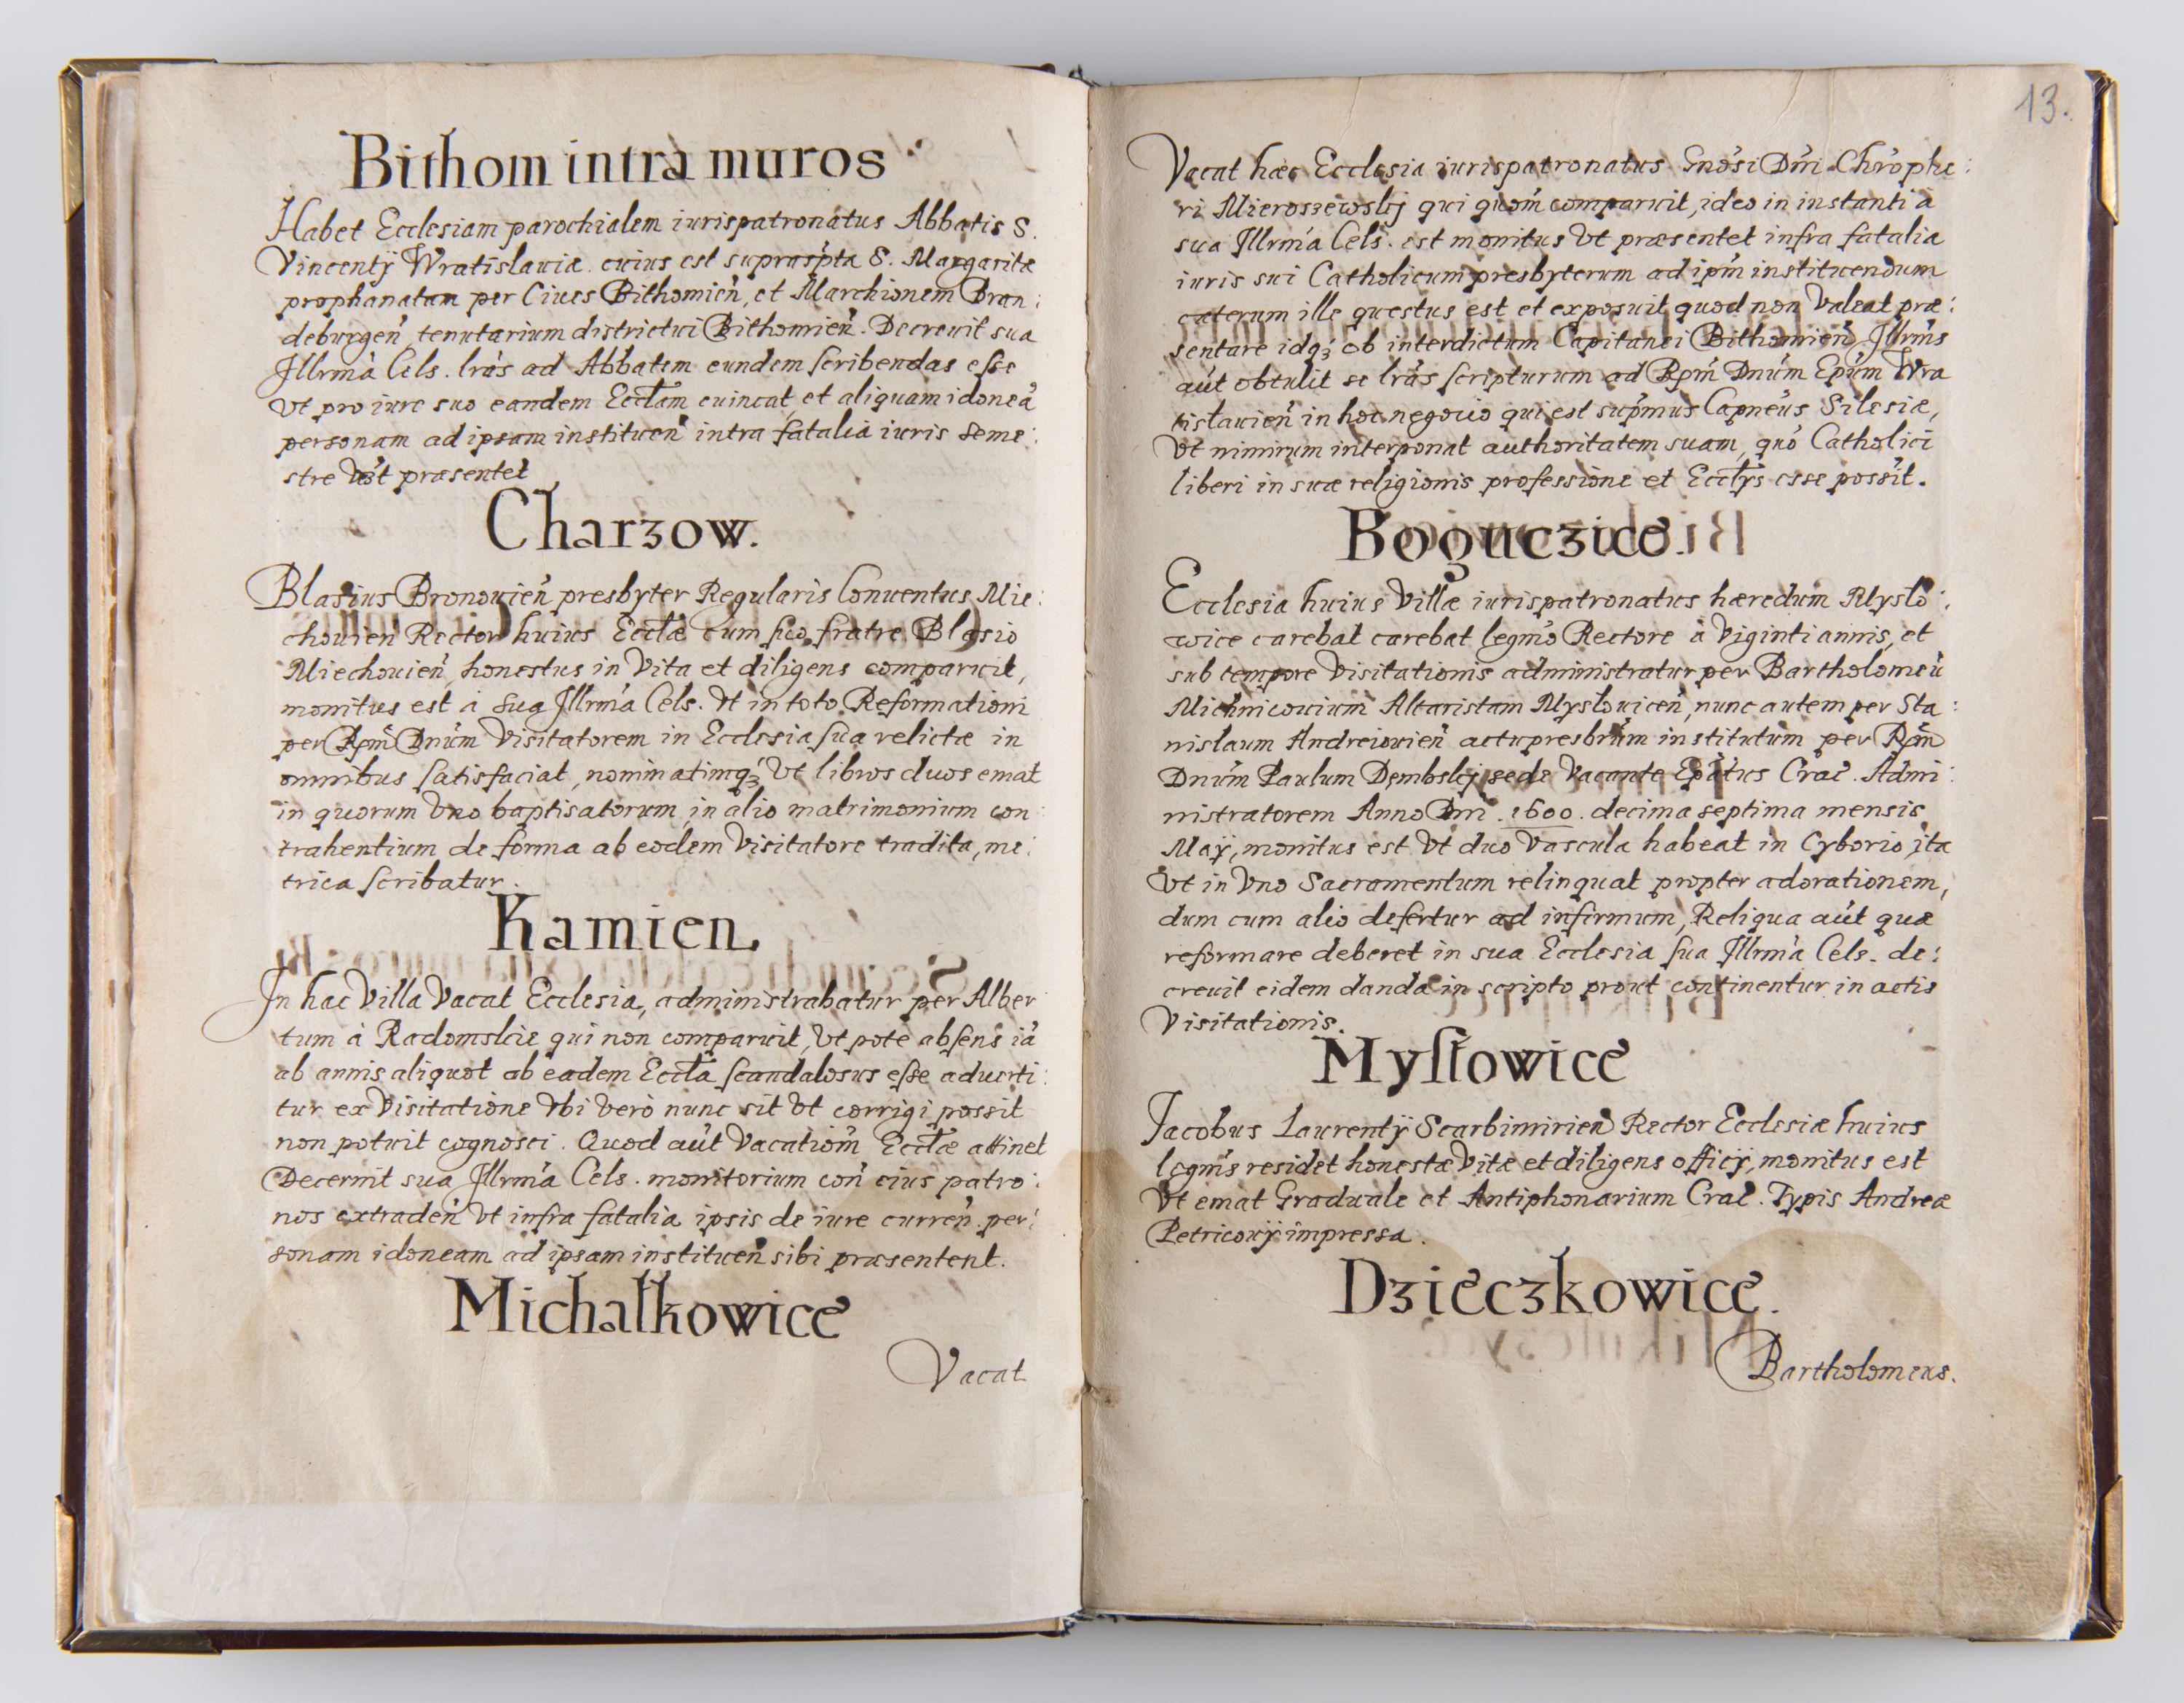 Bithom intra muros
Habet Ecclesiam parochialem iurispatronatus Abbatis S.
Vincentÿ Wratislauiæ. cuius est suprasp̃ta S. Margaritæ
prophanatam per Ciues Bithomień, et Marchionem Bran:
deburgeń tenutarium districtui Bithomień. Decreuit sua
Jllrm̃a Cels. lrãs ad Abbatem eundem scribendas esse
Vt pro iure suo eandem Eccl̃am euincat, et aliquam idoneã
personam ad ipsam instituen̄ intra fatalia iuris seme:
stre præsentet
Charzow.
Blasius Bronouień presbyter Regularis Conuentus Mie:
chouień Rector huius Eccl̃æ cum suo fratre Blasio
Miechouień, honestus in Vita et diligens comparuit,
monitus est á Sua Jllrm̃a Cels. Vt in toto Reformationi
per Rp̃m Dnũm Visitatorem in Ecclesia sua relictæ in
omnibus satisfaciat, nominatimqȝ Vt libros duos emat
in quorum Vno baptisatorum, in alio matrimonium con:
trahentium de forma ab eodem Visitatore tradita, me:
trica scribatur.
Kamien.
Jn hac Villa Vacat Ecclesia, administrabatur per Alber
tum á Radomskie qui non comparuit, Vt pote absens iã
ab annis aliquot ab eadem Eccl̃a scandalosus esse aduerti:
tur ex Visitatione Vbi verò nunc sit Vt corrigi possit
non potuit cognosci. Quod aũt Vacatiom̃ Eccl̃æ attinet
Decernit sua Jllrm̃a Cels. monitorium coñ eius patro:
nos extradeñ Vt infra fatalia ipsis de iure curreñ. per:
sonam idoneam ad ipsam instituen̄ sibi præsentent.
Michałkowice
Vacat
13.
Vacat hæc Ecclesia iurispatronatus Gnõsi Dñi Chrõphe:
ri Mieroszewskÿ qui quom̃ comparuit, ideo in instanti a
sua Jllrm̃a Cels. est monitus Vt præsentet infra fatalia
iuris sui Catholicum presbyterum ad ip̃m instituendum
cæterum ille questus est et exposuit quod non Valeat præ:
sentare idqȝ ob interdictum Capitanei Bithomień Jllrm̃s
aũt obtulit se lrãs scripturum ad Rp̃m Dnũm Ep̃um Wra
tislauień in hoc negocio qui est sup̃mus Capneũs Silesiæ,
Vt nimirum interponat authoritatem suam, quó Catholici
liberi in suæ religionis professione et Eccl̃ÿs esse possit̃.
Boguczice.
Ecclesia huius Villæ iurispatronatus hæredum Myslo:
wice carebat carebat legm̃o Rectore á Viginti annis, et
sub tempore Visitationis administratur per Bartholomeũ
Michniconium Altaristam Myslouiceń, nunc autem per Sta:
nislaum Andreiouień actu presbr̃um institutum per Rp̃m
Dnũm Paulum Dembskÿ sede Vacante Ep̃atus Crac̃. Admi:
nistratorem Anno Dñi. 1600. decima septima mensis
Maÿ, monitus est Vt duo Vascula habeat in Cyborio, ita
Vt in Vno Sacramentum relinquat propter adorationem,
dum cum alio defertur ad infirmum, Reliqua aũt quæ
reformare deberet in sua Ecclesia sua Jllrm̃a Cels. de:
creuit eidem danda in scripto prout continentur in actis
Visitationis.
Mysłowice
Jacobus Laurentÿ Scarbimirień Rector Ecclesiæ huius
legm̃s residet honestæ Vitæ et diligens officÿ, monitus est
Vt emat Graduale et Antiphonarium Crac̃. Typis Andreæ
Petricouÿ impressa.
Dzieczkowice.
Bartholomeus.